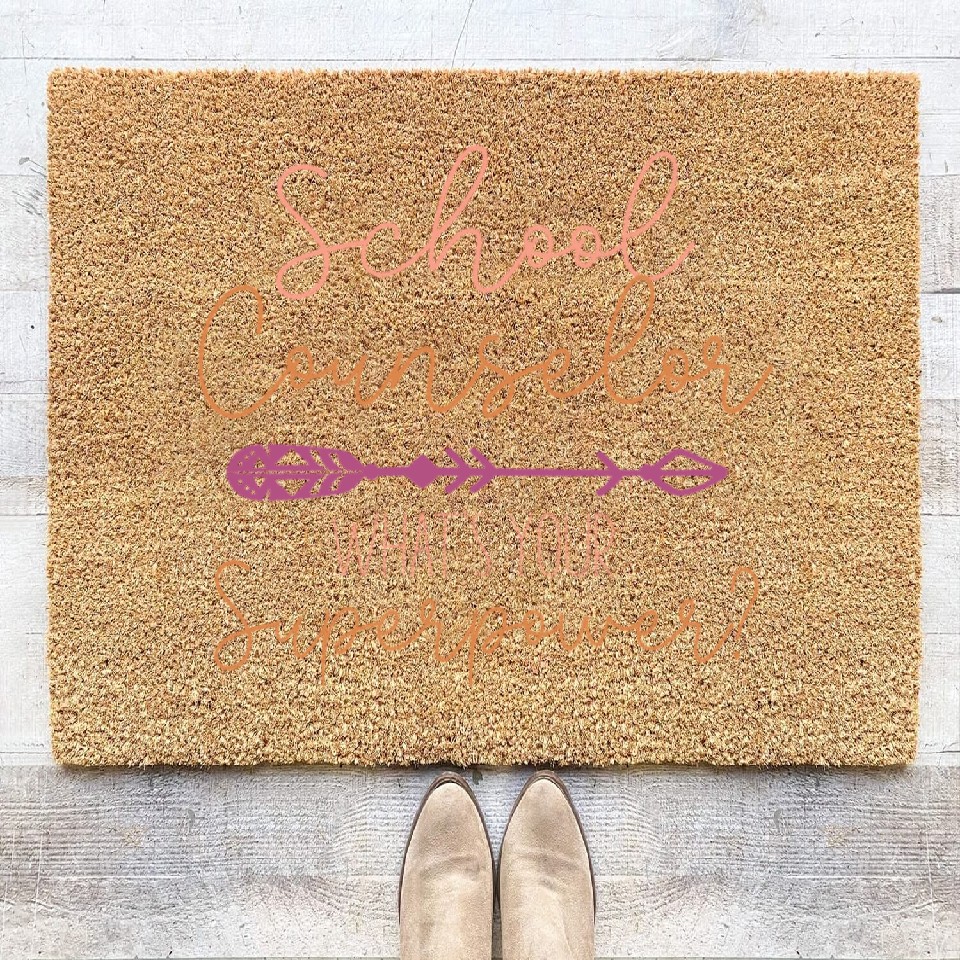 School
Counselor
WHAT'S YOUR
Superpower?